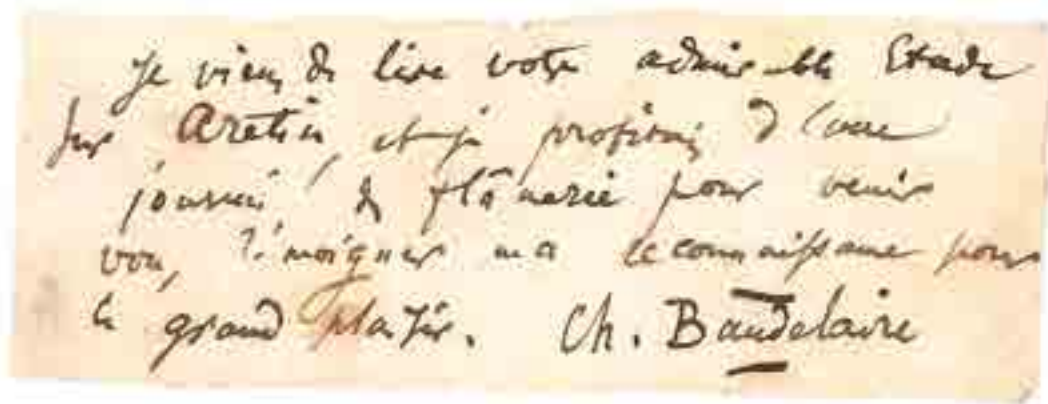 Je viens de lire votre admirable Etude
sur Aretin, et je profitais d'une
journée de flânerie pour venir
vous témoigner ma reconnaissance pour
ce grand plaisir. Ch. Baudelaire